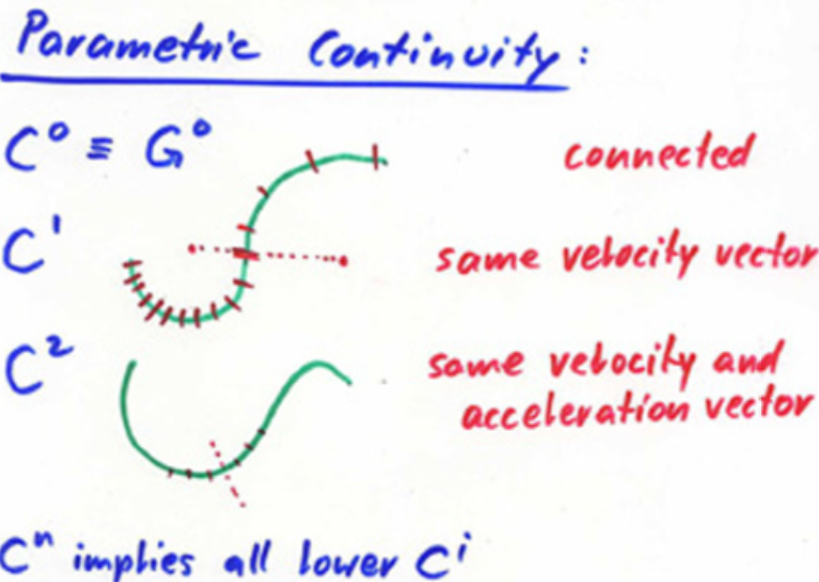 Parametric Continuity:
C⁰ ≡ G⁰ connected
C¹ same velocity vector
C² same velocity and
acceleration vector
Cⁿ implies all lower Cⁱ